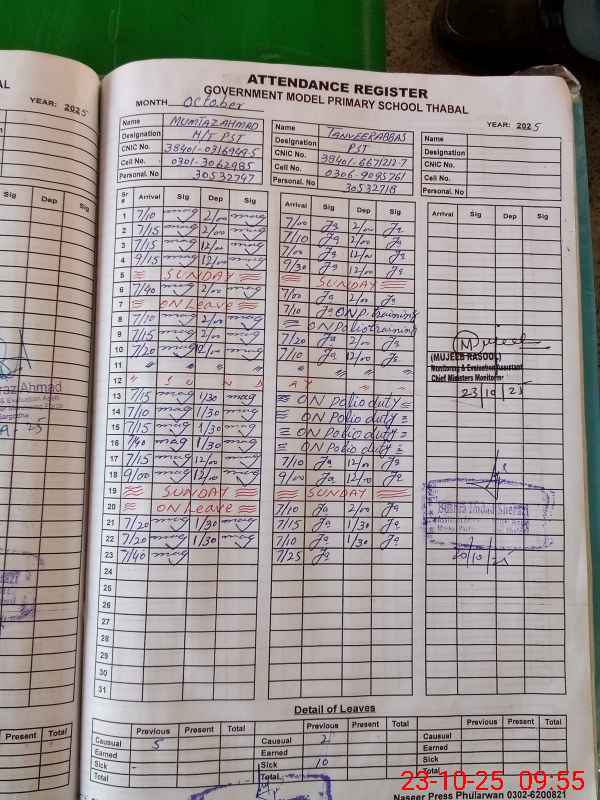 ATTENDANCE REGISTER
GOVERNMENT MODEL PRIMARY SCHOOL THABAL
MONTH October
YEAR: 2025
YEAR: 2025
Name MUMTAZ AHMAD
Designation H/T PST
CNIC No. 38401-0316969-5
Cell No. 0301-3062985
Personal. No 30532747
Name TANVEER ABBAS
Designation PST
CNIC No. 38401-6671217-7
Cell No. 0306-9095761
Personal. No 30532718
Name
Designation
CNIC No.
Cell No.
Personal. No
Sr # Arrival Sig Dep Sig Arrival Sig Dep Sig Arrival Sig Dep Sig
1 7/10 2/00 7/00 2/00
2 7/15 2/00 7/10 2/00
3 7/15 12/00 7/00 12/00
4 9/15 12/00 9/30 12/00
5 SUNDAY SUNDAY
6 7/40 2/00 7/00 2/00
7 ON Leave 7/10 ON P. training
8 7/10 2/00 ON Polio training
9 7/15 2/00 7/20 2/00
10 7/20 12/00 7/10 12/00
11 " " " " " " " "
12 " S U N D A Y " "
13 7/15 1/30 ON polio duty
14 7/10 1/30 ON Polio duty
15 7/15 1/30 ON Polio duty
16 7/40 1/30 ON Polio duty
17 7/15 12/00 7/10 12/00
18 9/00 12/00 9/00 12/00
19 SUNDAY SUNDAY
20 ON Leave 7/10 2/00
21 7/20 1/30 7/15 1/30
22 7/20 1/30 7/10 1/30
23 7/40 7/25
24
25
26
27
28
29
30
31
Mujeeb
(MUJEEB RASOOL)
Monitoring & Evaluation Assistant
Chief Ministers Monitoring
23/10/25
Bushra Imdad Sherazi
20/10/25
Detail of Leaves
Previous Present Total Previous Present Total Previous Present Total
Causual 5 Causual 2 Causual
Earned Earned Earned
Sick - Sick 10 Sick
Total Total Total
Naseer Press Phularwan 0302-6200821
23-10-25 09:55